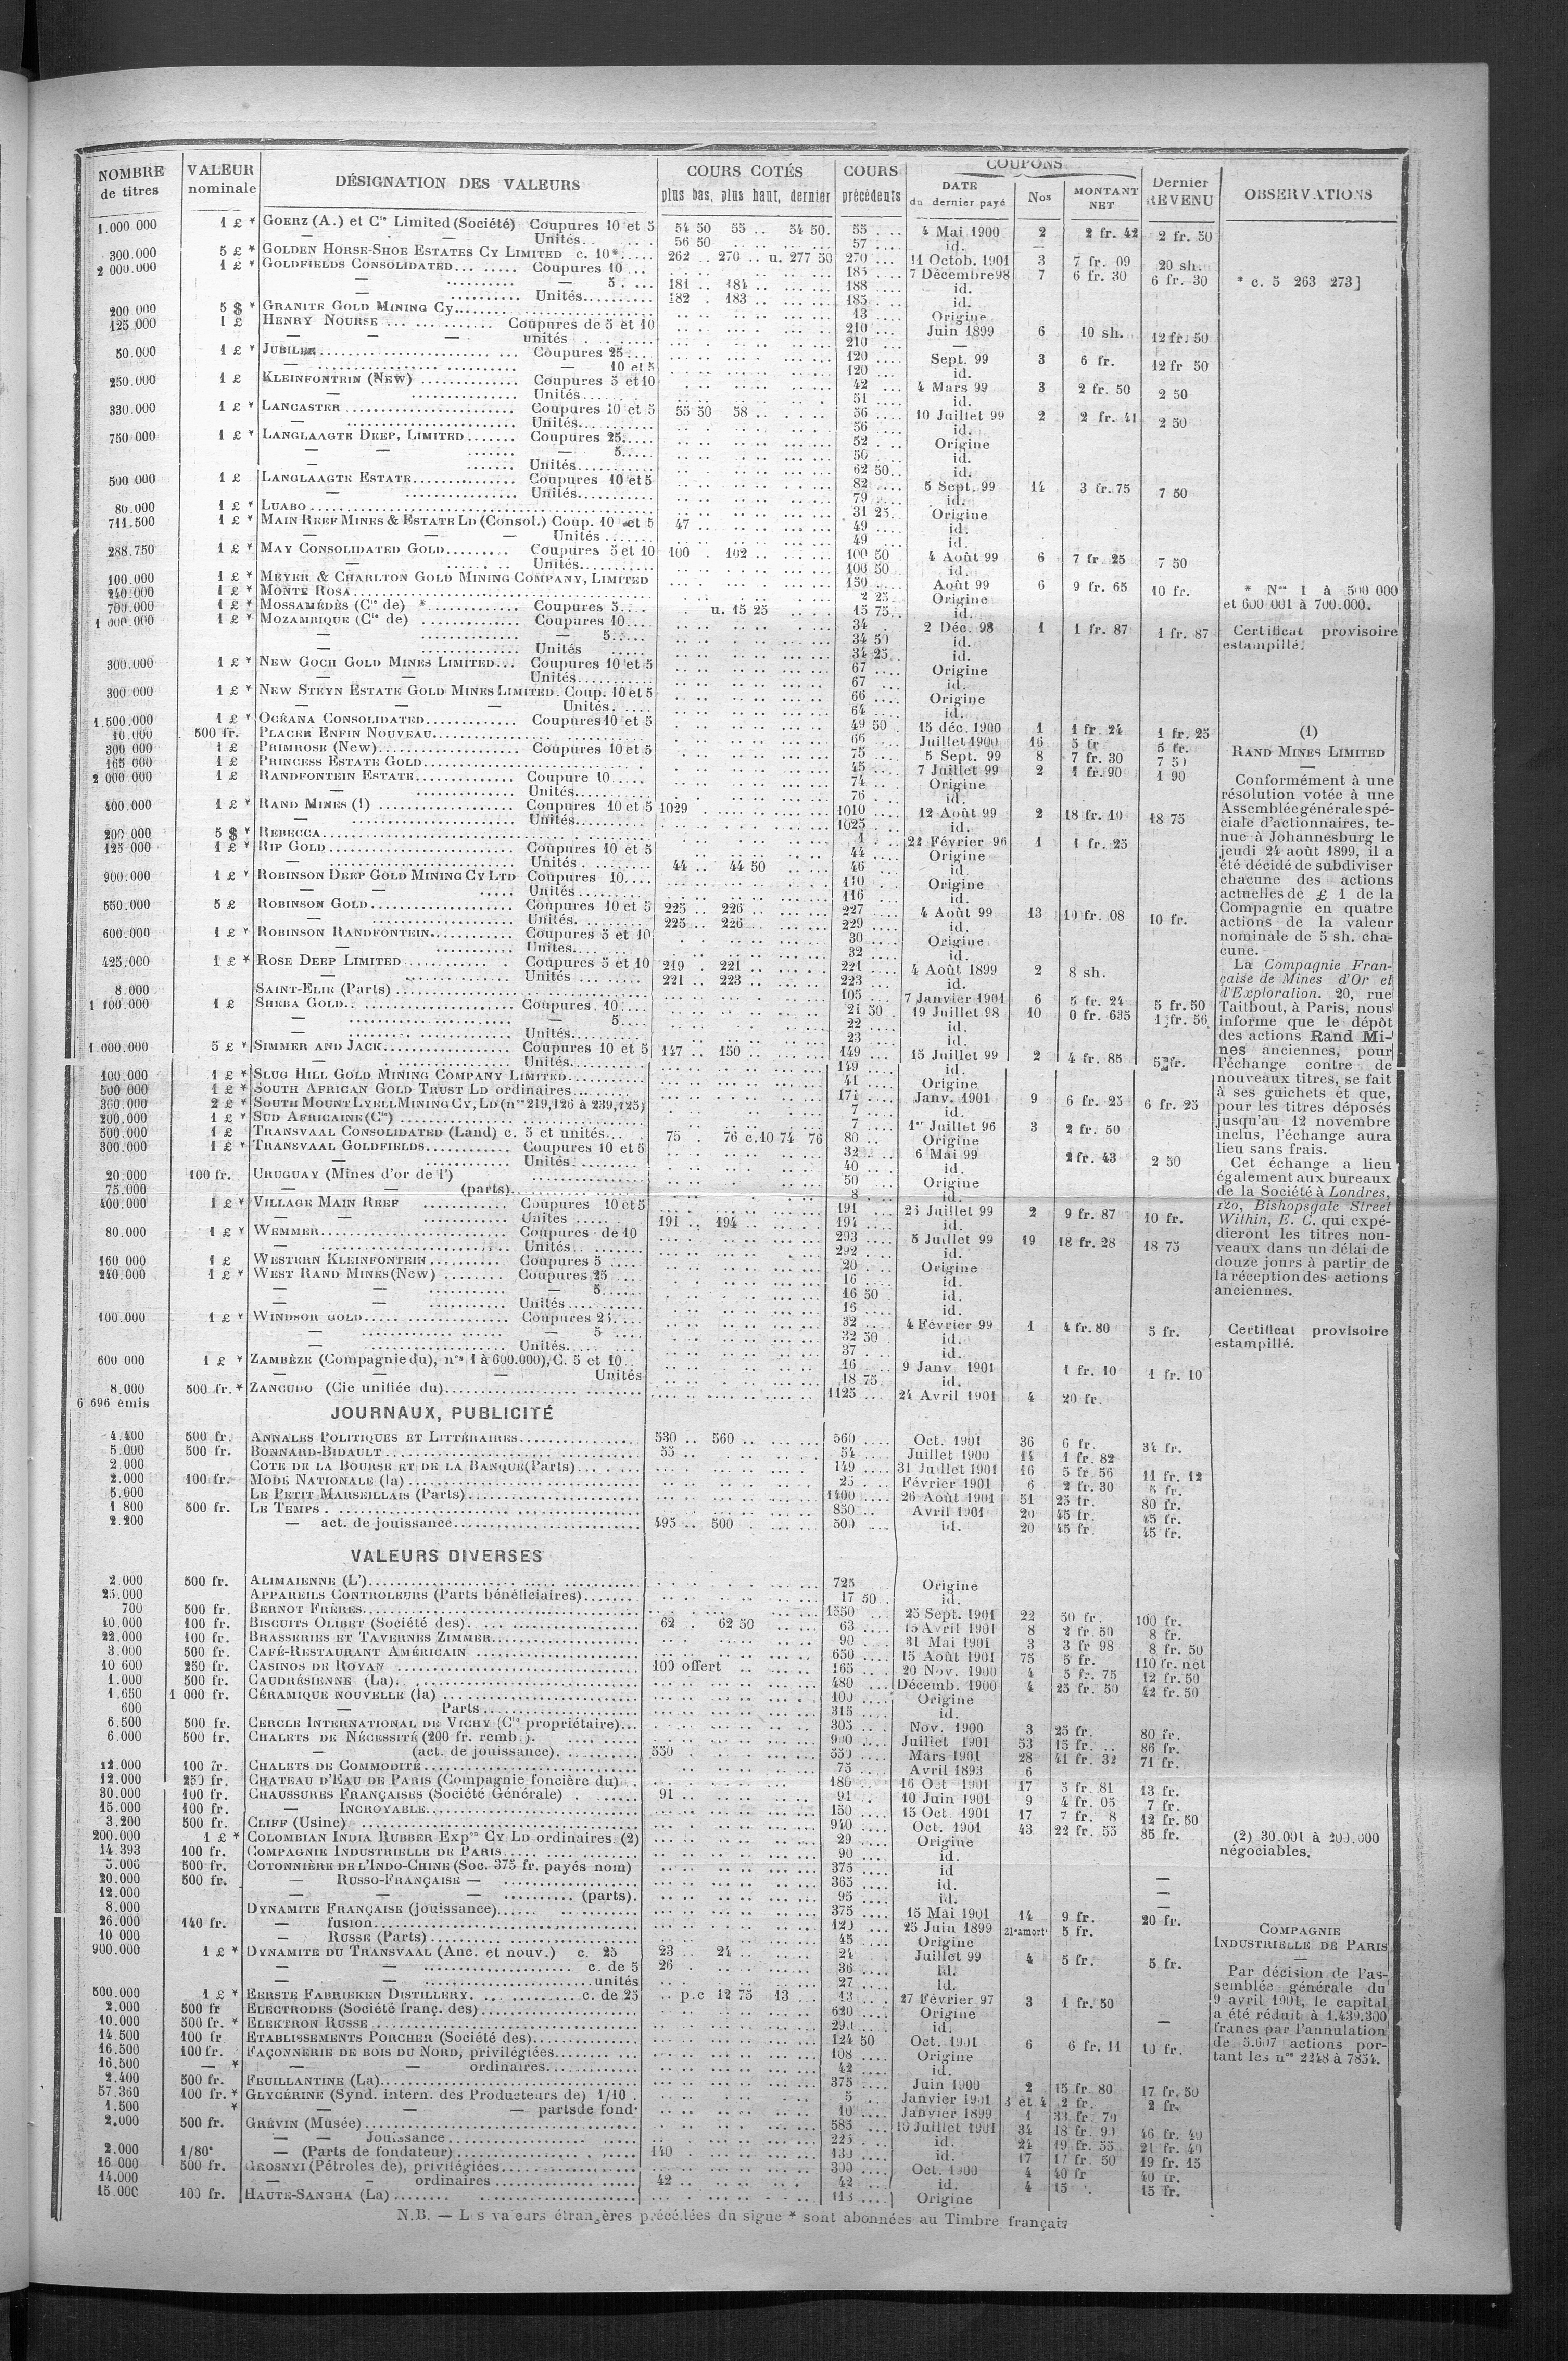 NOMBRE de titres | VALEUR nominale | DÉSIGNATION DES VALEURS | COURS COTÉS plus bas, plus haut, dernier | COURS précédents | COUPONS DATE du dernier payé | Nos | MONTANT NET | Dernier REVENU | OBSERVATIONS
1.000 000 1 £ * GOERZ (A.) et Cie Limited (Société) Coupures 10 et 5 54 50 55 .. 54 50 55 4 Mai 1900 2 2 fr. 42 2 fr. 50
— — Unités 56 50 57 id. —
300.000 5 £ * GOLDEN HORSE-SHOE ESTATES CY LIMITED c. 10* 262 .. 270 .. u. 277 50 270 11 Octob. 1901 3 7 fr. 09 20 sh.
2 000.000 1 £ * GOLDFIELDS CONSOLIDATED Coupures 10 185 7 Décembre 98 7 6 fr. 30 6 fr. 30 * c. 5 263 273]
— 5 181 .. 184 188 id.
— Unités 182 .. 183 185 id.
200 000 5 $ * GRANITE GOLD MINING Cy 13 Origine
125 000 1 £ HENRY NOURSE Coupures de 5 et 10 210 Juin 1899 6 10 sh. 12 fr. 50
— — — unités 210 —
50.000 1 £ * JUBILEE Coupures 25 120 Sept. 99 3 6 fr. 12 fr 50
— — 10 et 5 120 id.
250.000 1 £ KLEINFONTEIN (New) Coupures 5 et 10 42 4 Mars 99 3 2 fr. 50 2 50
— Unités 51 id.
330.000 1 £ * LANCASTER Coupures 10 et 5 55 50 58 56 10 Juillet 99 2 2 fr. 41 2 50
— Unités 56 id.
750 000 1 £ * LANGLAAGTE DEEP, LIMITED Coupures 25 52 Origine
— — — 5 50 id.
— Unités 62 50 id.
500 000 1 £ LANGLAAGTE ESTATE Coupures 10 et 5 82 5 Sept. 99 14 3 fr. 75 7 50
— Unités 79 id.
80.000 1 £ * LUABO 31 25 Origine
711.500 1 £ * MAIN REEF MINES & ESTATE LD (Consol.) Coup. 10 et 5 47 49 id.
— — — Unités 49 id.
288.750 1 £ * MAY CONSOLIDATED GOLD Coupures 5 et 10 100 . 102 100 50 4 Août 99 6 7 fr 25 7 50
— Unités 100 50 id.
100.000 1 £ * MEYER & CHARLTON GOLD MINING COMPANY, LIMITED 150 Août 99 6 9 fr. 65 10 fr.
240.000 1 £ * MONTE ROSA 2 25 Origine * Nos 1 à 500 000
700.000 1 £ * MOSSAMÉDÈS (Cie de) * Coupures 5 u. 15 25 15 75 id. et 600 001 à 700.000.
1 000.000 1 £ * MOZAMBIQUE (Cie de) Coupures 10 34 2 Déc. 98 1 1 fr. 87 1 fr. 87 Certificat provisoire
— — 5 34 50 id. estampillé.
— Unités 34 25 id.
300.000 1 £ * NEW GOCH GOLD MINES LIMITED Coupures 10 et 5 67 Origine
— — Unités 67 id.
300 000 1 £ * NEW STEYN ESTATE GOLD MINES LIMITED. Coup. 10 et 5 66 Origine
— — — Unités 64 id.
1.500.000 1 £ * OCÉANA CONSOLIDATED Coupures 10 et 5 49 50 15 déc. 1900 1 1 fr. 24 1 fr. 25
10.000 500 fr. PLACER ENFIN NOUVEAU 66 Juillet 1900 16 5 fr 5 fr.
300 000 1 £ PRIMROSE (New) Coupures 10 et 5 75 5 Sept. 99 8 7 fr. 30 7 50
165 000 1 £ PRINCESS ESTATE GOLD 45 7 Juillet 99 2 1 fr. 90 1 90
2 000 000 1 £ RANDFONTEIN ESTATE Coupure 10 74 Origine
— Unités 76 id.
400.000 1 £ * RAND MINES (1) Coupures 10 et 5 1029 1010 12 Août 99 2 18 fr. 10 18 75
— Unités 1025 id.
200.000 5 $ * REBECCA 1 22 Février 96 1 1 fr. 25
125 000 1 £ * RIP GOLD Coupures 10 et 5 44 Origine
— Unités 44 .. 44 50 46 id.
900.000 1 £ * ROBINSON DEEP GOLD MINING CY LTD Coupures 10 110 Origine
— — Unités 116 id.
550.000 5 £ ROBINSON GOLD Coupures 10 et 5 225 .. 226 227 4 Août 99 13 10 fr. 08 10 fr.
— Unités 225 .. 226 229 id.
600.000 1 £ * ROBINSON RANDFONTEIN Coupures 5 et 10 30 Origine
— Unités 32 id.
425.000 1 £ * ROSE DEEP LIMITED Coupures 5 et 10 219 . 221 221 4 Août 1899 2 8 sh.
— Unités 221 .. 223 223 id.
8.000 SAINT-ELIE (Parts) 105 7 Janvier 1901 6 5 fr. 24 5 fr. 50
1 100.000 1 £ SHEBA GOLD Coupures 10 21 50 19 Juillet 98 10 0 fr. 635 1 fr. 56
— — 5 22 id.
— Unités 23 id.
1.000.000 5 £ * SIMMER AND JACK Coupures 10 et 5 147 .. 150 149 15 Juillet 99 2 4 fr. 85 5 fr.
— Unités 149 id.
100.000 1 £ * SLUG HILL GOLD MINING COMPANY LIMITED 41 Origine
500 000 1 £ * SOUTH AFRICAN GOLD TRUST LD ordinaires 171 Janv. 1901 9 6 fr. 25 6 fr. 25
300.000 2 £ * SOUTH MOUNT LYELL MINING CY, LD (nos 219,126 à 239,125) 7 id.
200.000 1 £ * SUD AFRICAINE (Cie) 7 1er Juillet 96 3 2 fr. 50
500.000 1 £ TRANSVAAL CONSOLIDATED (Land) c. 5 et unités 75 . 76 c.10 74 76 80 Origine
300.000 1 £ * TRANSVAAL GOLDFIELDS Coupures 10 et 5 32 6 Mai 99 2 fr. 43 2 50
— Unités 40 id.
20.000 100 fr. URUGUAY (Mines d'or de l') 50 Origine
75.000 — — (parts) 8 id.
400.000 1 £ * VILLAGE MAIN REEF Coupures 10 et 5 191 25 Juillet 99 2 9 fr. 87 10 fr.
— — Unités 191 .. 194 194 id.
80.000 1 £ * WEMMER Coupures de 10 293 5 Juillet 99 19 18 fr. 28 18 75
— Unités 292 id.
160 000 1 £ WESTERN KLEINFONTEIN Coupures 5 20 Origine
240.000 1 £ * WEST RAND MINES (New) Coupures 25 16 id.
— — — 5 16 50 id.
— — Unités 16 id.
100.000 1 £ * WINDSOR GOLD Coupures 25 32 4 Février 99 1 4 fr. 80 5 fr. Certificat provisoire
— — 5 32 50 id. estampillé.
— Unités 37 id.
600 000 1 £ * ZAMBÈZE (Compagnie du), nos 1 à 600.000), C. 5 et 10 16 9 Janv 1901 1 fr. 10 1 fr. 10
— — — Unités 18 75 id.
8.000 500 fr. * ZANGUDO (Cie unifiée du) 1125 24 Avril 1901 4 20 fr.
6 696 émis
(1)
RAND MINES LIMITED
—
Conformément à une
résolution votée à une
Assemblée générale spé-
ciale d'actionnaires, te-
nue à Johannesburg le
jeudi 24 août 1899, il a
été décidé de subdiviser
chacune des actions
actuelles de £ 1 de la
Compagnie en quatre
actions de la valeur
nominale de 5 sh. cha-
cune.
La Compagnie Fran-
çaise de Mines d'Or et
d'Exploration. 20, rue
Taitbout, à Paris, nous
informe que le dépôt
des actions Rand Mi-
nes anciennes, pour
l'échange contre de
nouveaux titres, se fait
à ses guichets et que,
pour les titres déposés
jusqu'au 12 novembre
inclus, l'échange aura
lieu sans frais.
Cet échange a lieu
également aux bureaux
de la Société à Londres,
120, Bishopsgate Street
Within, E. C. qui expé-
dieront les titres nou-
veaux dans un délai de
douze jours à partir de
la réception des actions
anciennes.
JOURNAUX, PUBLICITÉ
4.400 500 fr. ANNALES POLITIQUES ET LITTÉRAIRES 530 .. 560 560 Oct. 1901 36 6 fr. 34 fr.
5.000 500 fr. BONNARD-BIDAULT 55 54 Juillet 1900 14 1 fr. 82
2.000 COTE DE LA BOURSE ET DE LA BANQUE (Parts) 149 31 Juillet 1901 16 5 fr 56 11 fr. 12
2.000 100 fr. MODE NATIONALE (la) 25 Février 1901 6 2 fr. 30 5 fr.
5.600 LE PETIT MARSEILLAIS (Parts) 1400 26 Août 1901 51 25 fr. 80 fr.
1 800 500 fr. LE TEMPS 850 Avril 1901 20 45 fr. 45 fr.
2.200 — act. de jouissance 495 .. 500 500 id. 20 45 fr. 45 fr.
VALEURS DIVERSES
2.000 500 fr. ALIMAIENNE (L') 725 Origine
25.000 APPAREILS CONTROLEURS (Parts bénéficiaires) 17 50 id.
700 500 fr. BERNOT FRÈRES 1550 25 Sept. 1901 22 50 fr. 100 fr.
40.000 100 fr. BISCUITS OLIBET (Société des) 62 .. 62 50 63 15 Avril 1901 8 2 fr. 50 8 fr.
22.000 100 fr. BRASSERIES ET TAVERNES ZIMMER 90 31 Mai 1901 3 3 fr 98 8 fr. 50
3.000 500 fr. CAFÉ-RESTAURANT AMÉRICAIN 650 15 Août 1901 75 5 fr. 110 fr. net
10 600 250 fr. CASINOS DE ROYAN 100 offert 165 20 Nov. 1900 4 5 fr. 75 12 fr. 50
1.000 500 fr. CAUDRÉSIENNE (La) 480 Décemb. 1900 4 25 fr. 50 42 fr. 50
1.650 1 000 fr. CÉRAMIQUE NOUVELLE (la) 100 Origine
600 — Parts 315 id.
6.500 500 fr. CERCLE INTERNATIONAL DE VICHY (Cie propriétaire) 305 Nov. 1900 3 25 fr. 80 fr.
6.000 500 fr. CHALETS DE NÉCESSITÉ (200 fr. remb.) 900 Juillet 1901 53 15 fr. 86 fr.
— (act. de jouissance) 550 550 Mars 1901 28 41 fr. 32 71 fr.
12.000 100 fr. CHALETS DE COMMODITÉ 75 Avril 1893 6
12.000 250 fr. CHATEAU D'EAU DE PARIS (Compagnie foncière du) 180 16 Oct 1901 17 5 fr. 81 13 fr.
30.000 100 fr. CHAUSSURES FRANÇAISES (Société Générale) 91 91 10 Juin 1901 9 4 fr. 05 7 fr.
15.000 100 fr. — INCROYABLE 150 15 Oct. 1901 17 7 fr. 8 12 fr. 50
3.200 500 fr. CLIFF (Usine) 940 Oct. 1901 43 22 fr. 55 85 fr.
200.000 1 £ * COLOMBIAN INDIA RUBBER Expon CY LD ordinaires (2) 29 Origine (2) 30.001 à 200.000
14.393 100 fr. COMPAGNIE INDUSTRIELLE DE PARIS 90 id. négociables.
5.000 500 fr. COTONNIÈRE DE L'INDO-CHINE (Soc. 375 fr. payés nom) 375 id
20.000 500 fr. — RUSSO-FRANÇAISE — 365 id. —
12.000 — — — (parts) 95 id. —
8.000 DYNAMITE FRANÇAISE (jouissance) 375 15 Mai 1901 14 9 fr. —
26.000 140 fr. — fusion 120 25 Juin 1899 21e amort 5 fr. 20 fr.
10 000 — RUSSE (Parts) 45 Origine
900.000 1 £ * DYNAMITE DU TRANSVAAL (Anc. et nouv.) c. 25 23 .. 24 24 Juillet 99 4 5 fr. 5 fr.
— — c. de 5 26 36 id.
— — unités 27 id.
500.000 1 £ * EERSTE FABRIEKEN DISTILLERY c. de 25 .. p.c 12 75 13 13 27 Février 97 3 1 fr. 50
2.000 500 fr ELECTRODES (Société franç. des) 620 Origine
10.000 500 fr. * ELEKTRON RUSSE 290 id. —
14.500 100 fr ETABLISSEMENTS PORCHER (Société des) 124 50 Oct. 1901 6 6 fr. 11 10 fr.
16.500 100 fr. FAÇONNERIE DE BOIS DU NORD, privilégiées 108 Origine
16.500 — * — — ordinaires 42 id.
2.400 500 fr. FEUILLANTINE (La) 375 Juin 1900 2 15 fr. 80 17 fr. 50
57.360 100 fr. * GLYCÉRINE (Synd. intern. des Producteurs de) 1/10 5 Janvier 1901 3 et 4 2 fr. 2 fr.
1.500 * — — — parts de fond. 10 Janvier 1899 1 33 fr. 70
2.000 500 fr. GRÉVIN (Musée) 585 10 Juillet 1901 34 18 fr. 90 46 fr. 40
— — Jouissance 225 id. 24 19 fr. 55 21 fr. 40
2.000 1/80e — (Parts de fondateur) 140 130 id. 17 17 fr. 50 19 fr. 15
16 000 500 fr. GROSNYI (Pétroles de), privilégiées 300 Oct. 1900 4 40 fr 40 fr.
14.000 — — ordinaires 42 42 id. 4 15 15 fr.
15.000 100 fr. HAUTE-SANGHA (La) 113 Origine
COMPAGNIE
INDUSTRIELLE DE PARIS
—
Par décision de l'as-
semblée générale du
9 avril 1901, le capital
a été réduit à 1.439.300
francs par l'annulation
de 5.607 actions por-
tant les nos 2248 à 7854.
N.B. — Les valeurs étrangères précédées du signe * sont abonnées au Timbre français